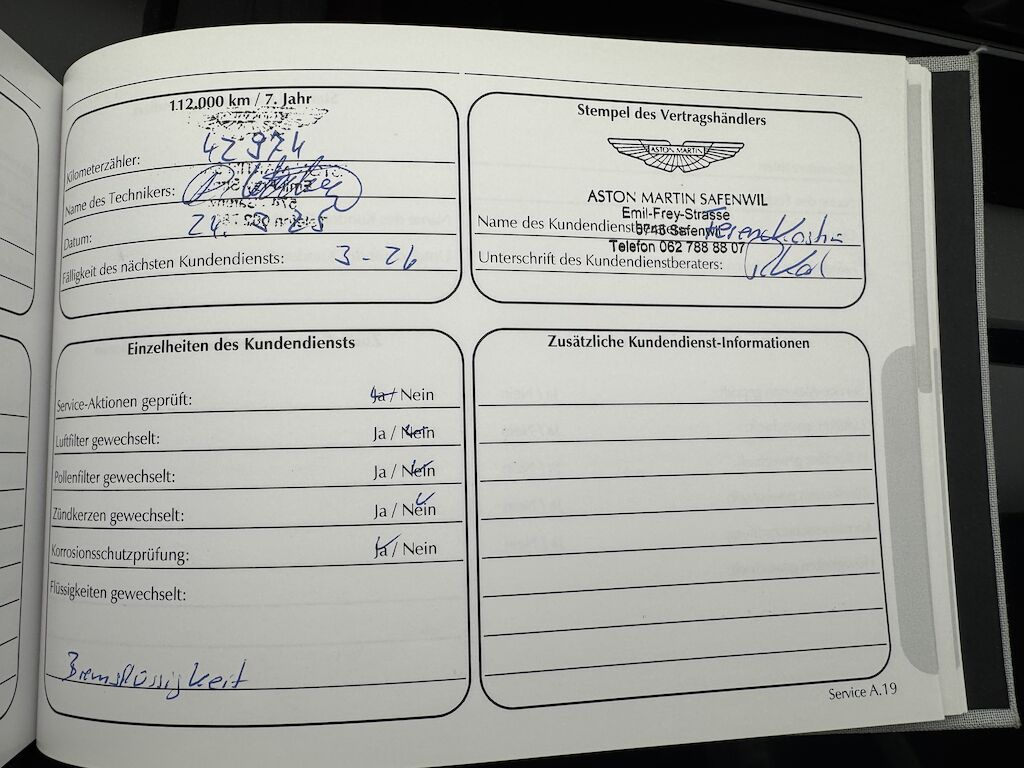 112.000 km / 7. Jahr
Kilometerzähler: 42974
Name des Technikers:
Datum: 24. 3 25
Fälligkeit des nächsten Kundendiensts: 3 - 26
Stempel des Vertragshändlers
ASTON MARTIN
ASTON MARTIN SAFENWIL
Emil-Frey-Strasse
5745 Safenwil
Name des Kundendienstberaters:
Telefon 062 788 88 07
Unterschrift des Kundendienstberaters:
Einzelheiten des Kundendiensts
Service-Aktionen geprüft: Ja / Nein
Luftfilter gewechselt: Ja / Nein
Pollenfilter gewechselt: Ja / Nein
Zündkerzen gewechselt: Ja / Nein
Korrosionsschutzprüfung: Ja / Nein
Flüssigkeiten gewechselt:
Bremsflüssigkeit
Zusätzliche Kundendienst-Informationen
Service A.19